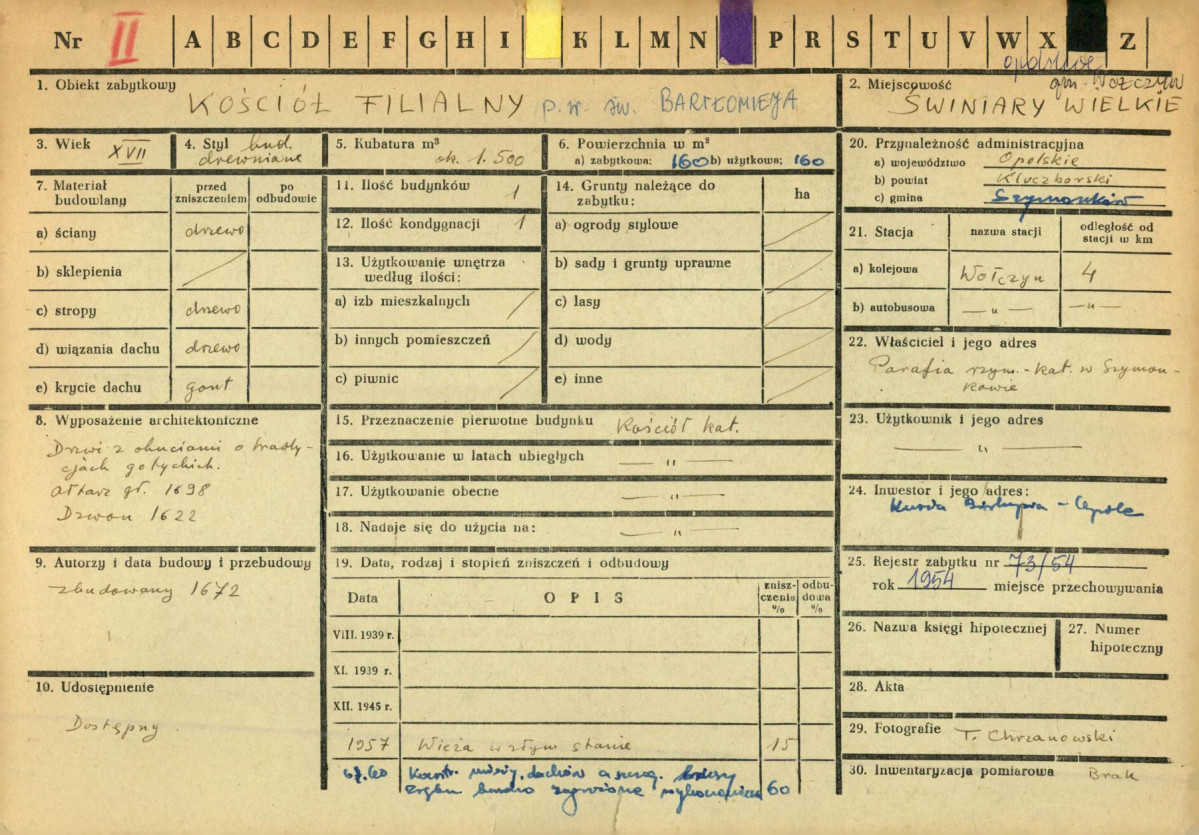 Nr II A B C D E F G H I K L M N P R S T U V W X Z
1. Obiekt zabytkowy
KOŚCIÓŁ FILIALNY p.w. św. BARTŁOMIEJA
opolskie
2. Miejscowość gm. Wołczyn
ŚWINIARY WIELKIE
3. Wiek XVII
4. Styl bud. drewniane
5. Kubatura m³
ok. 1.500
6. Powierzchnia w m²
a) zabytkowa: 160 b) użytkowa; 160
7. Materiał budowlany
przed zniszczeniem
po odbudowie
a) ściany drzewo
b) sklepienia
c) stropy drzewo
d) wiązania dachu drzewo
e) krycie dachu gont
8. Wyposażenie architektoniczne
Drzwi z okuciami o trady-
cjach gotyckich.
Ołtarz gł. 1698
Dzwon 1622
9. Autorzy i data budowy i przebudowy
zbudowany 1672
10. Udostępnienie
Dostępny.
11. Ilość budynków 1
12. Ilość kondygnacji 1
13. Użytkowanie wnętrza
według ilości:
a) izb mieszkalnych
b) innych pomieszczeń
c) piwnic
14. Grunty należące do
zabytku:
ha
a) ogrody stylowe
b) sady i grunty uprawne
c) lasy
d) wody
e) inne
15. Przeznaczenie pierwotne budynku Kościół kat.
16. Użytkowanie w latach ubiegłych — " —
17. Użytkowanie obecne — " —
18. Nadaje się do użycia na: — " —
19. Data, rodzaj i stopień zniszczeń i odbudowy
Data
OPIS
znisz-
czenia
%
odbu-
dowa
%
VIII. 1939 r.
XI. 1939 r.
XII. 1945 r.
1957 Wieża w złym stanie 15
60
20. Przynależność administracyjna
a) województwo Opolskie
b) powiat Kluczborski
c) gmina Szymonków
21. Stacja
nazwa stacji
odległość od
stacji w km
a) kolejowa Wołczyn 4
b) autobusowa — " — — " —
22. Właściciel i jego adres
Parafia rzym.-kat. w Szymon-
kowie
23. Użytkownik i jego adres
— " —
24. Inwestor i jego adres:
Kuria Biskupia - Opole
25. Rejestr zabytku nr 73/54
rok 1954 miejsce przechowywania
26. Nazwa księgi hipotecznej
27. Numer
hipoteczny
28. Akta
29. Fotografie T. Chrzanowski
30. Inwentaryzacja pomiarowa Brak